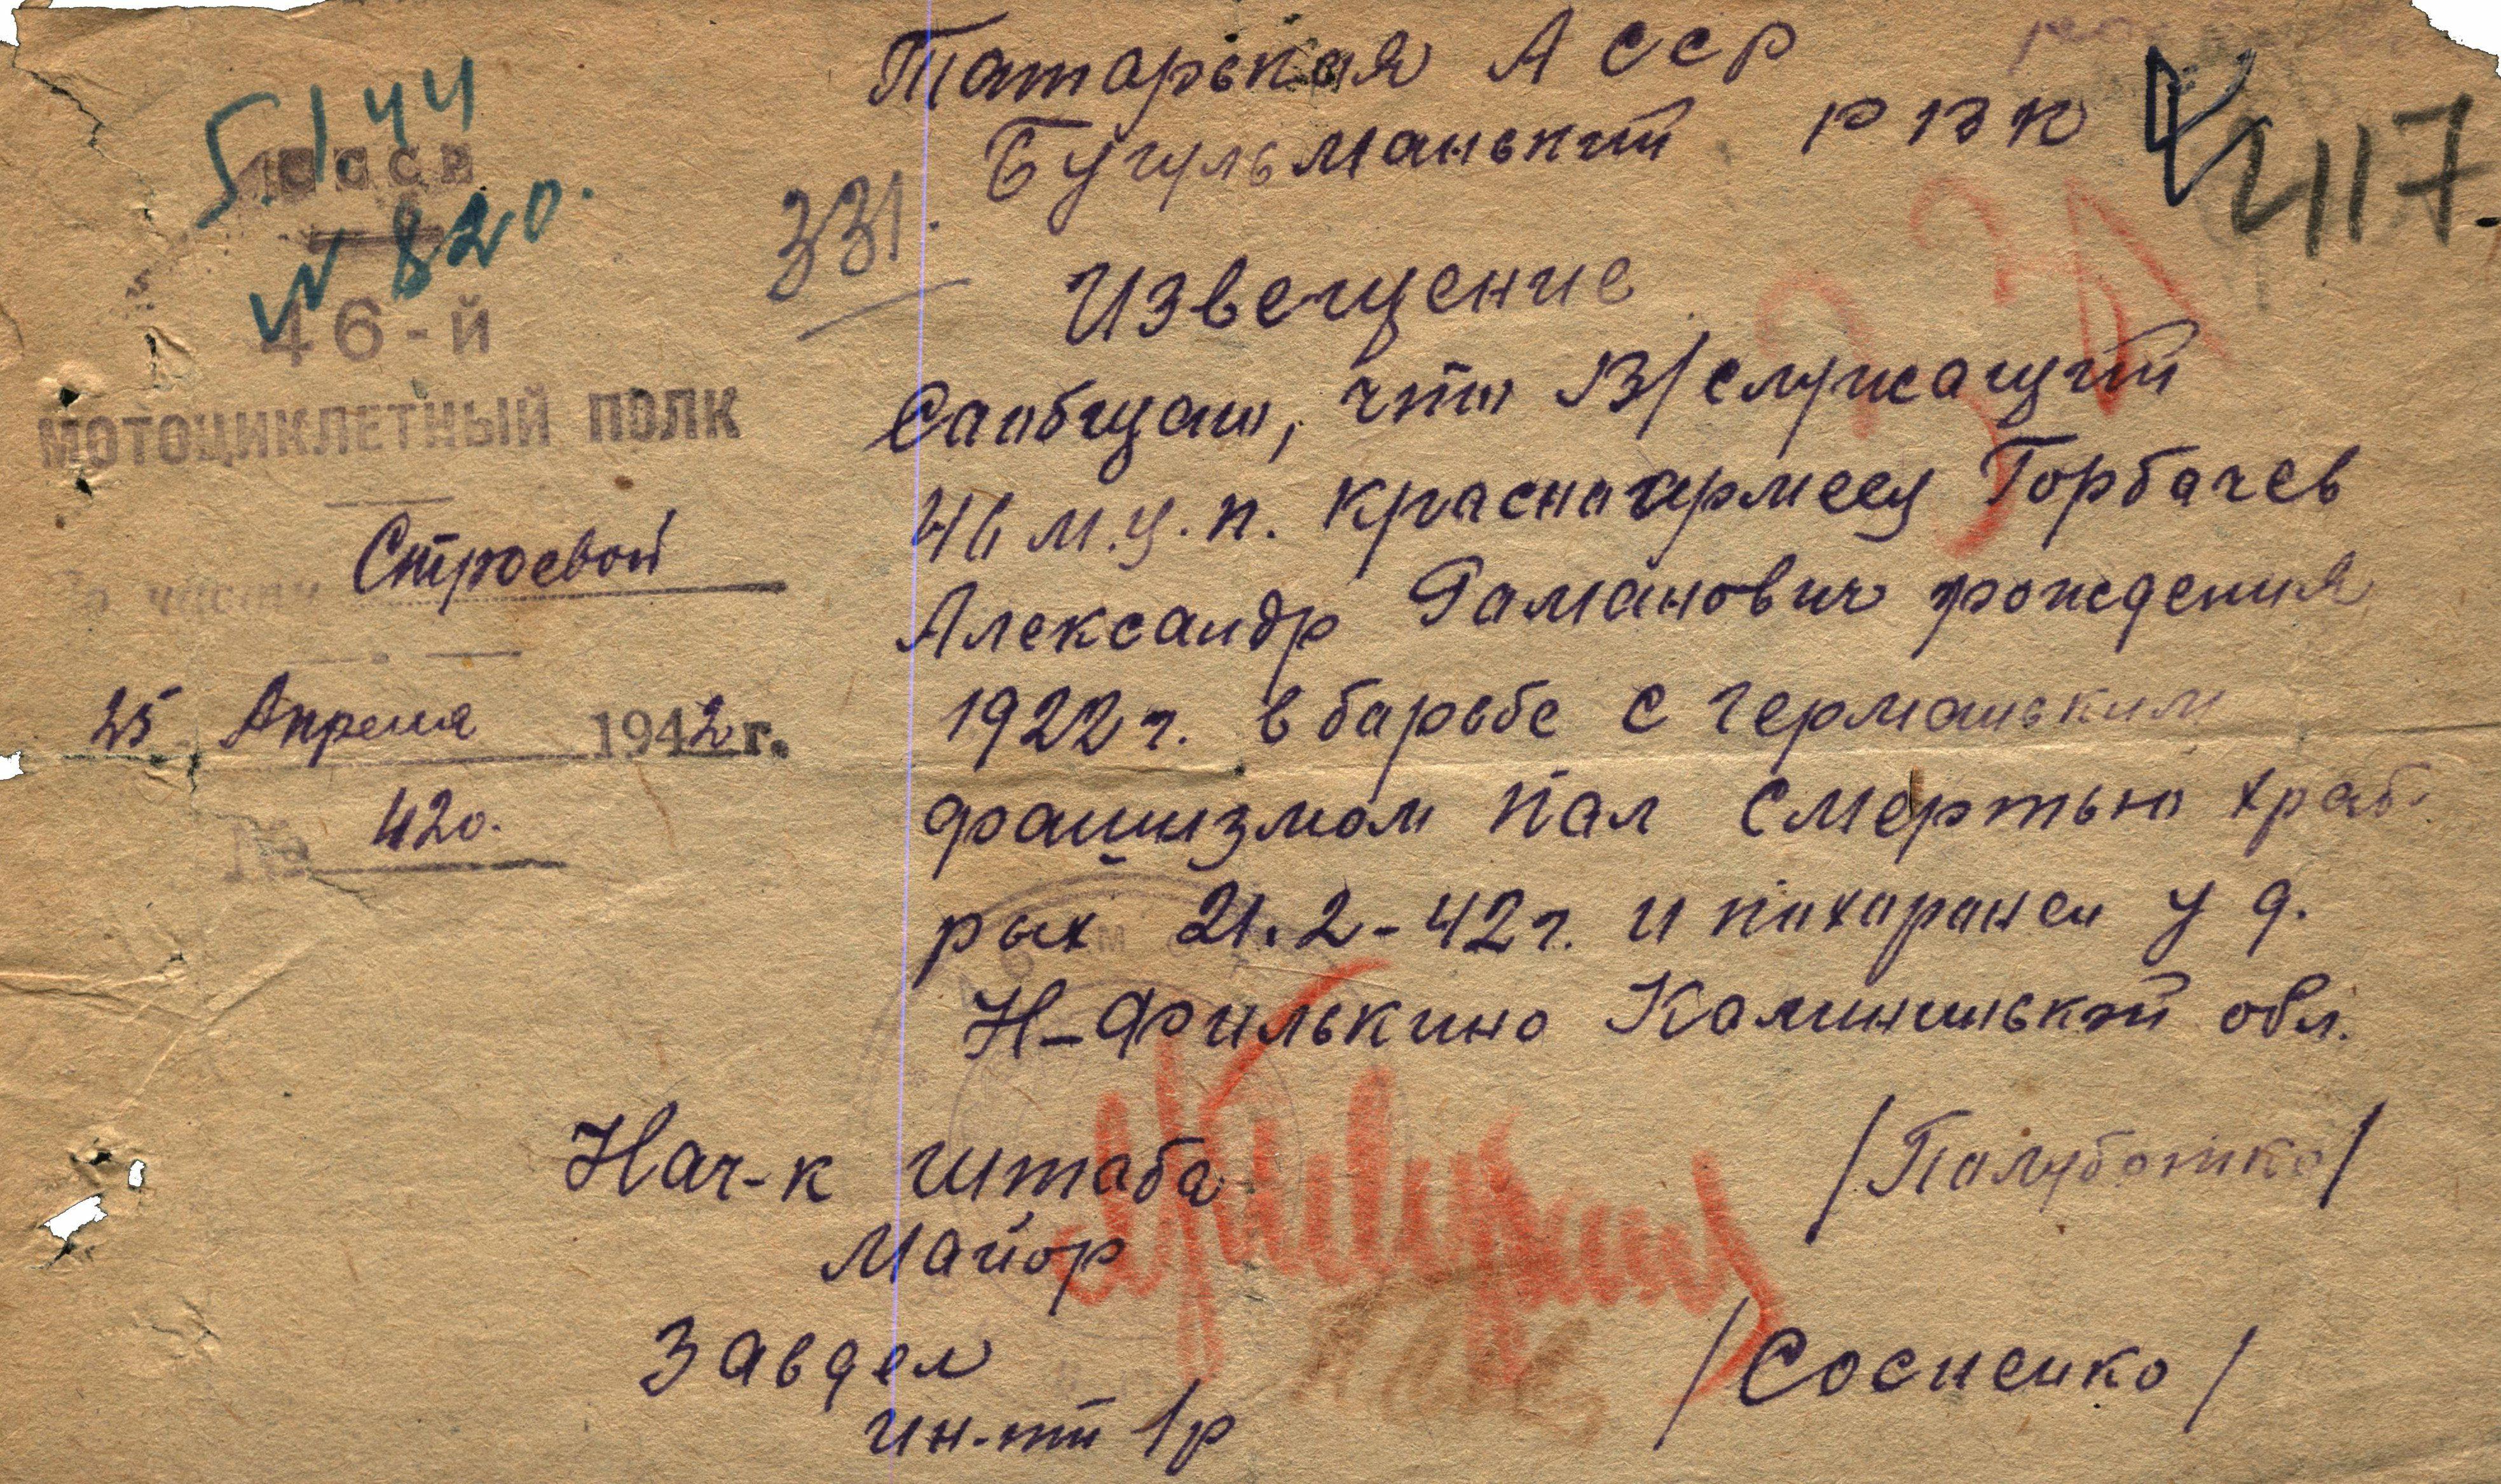 5.1.44
СССР
№ 820.
46-й
МОТОЦИКЛЕТНЫЙ ПОЛК
По части Строевой
25 Апреля 1942 г.
№ 420.
331.
4117.
Татарьская АССР
Бугульманьский РВК
Извещение
Саобщаю, что В/служащий
46 м.ц.п. красноармеец Горбачев
Александр Раманович рождения
1922 г. в барьбе с германьким
фашизмом пал смертью храб
рых 21.2-42 г. и похоранен у д.
Н-Филькино Калининьской обл.
Нач-к штаба
Майор /Палуботко/
Завдел
ин-т 1р /Сосненко/